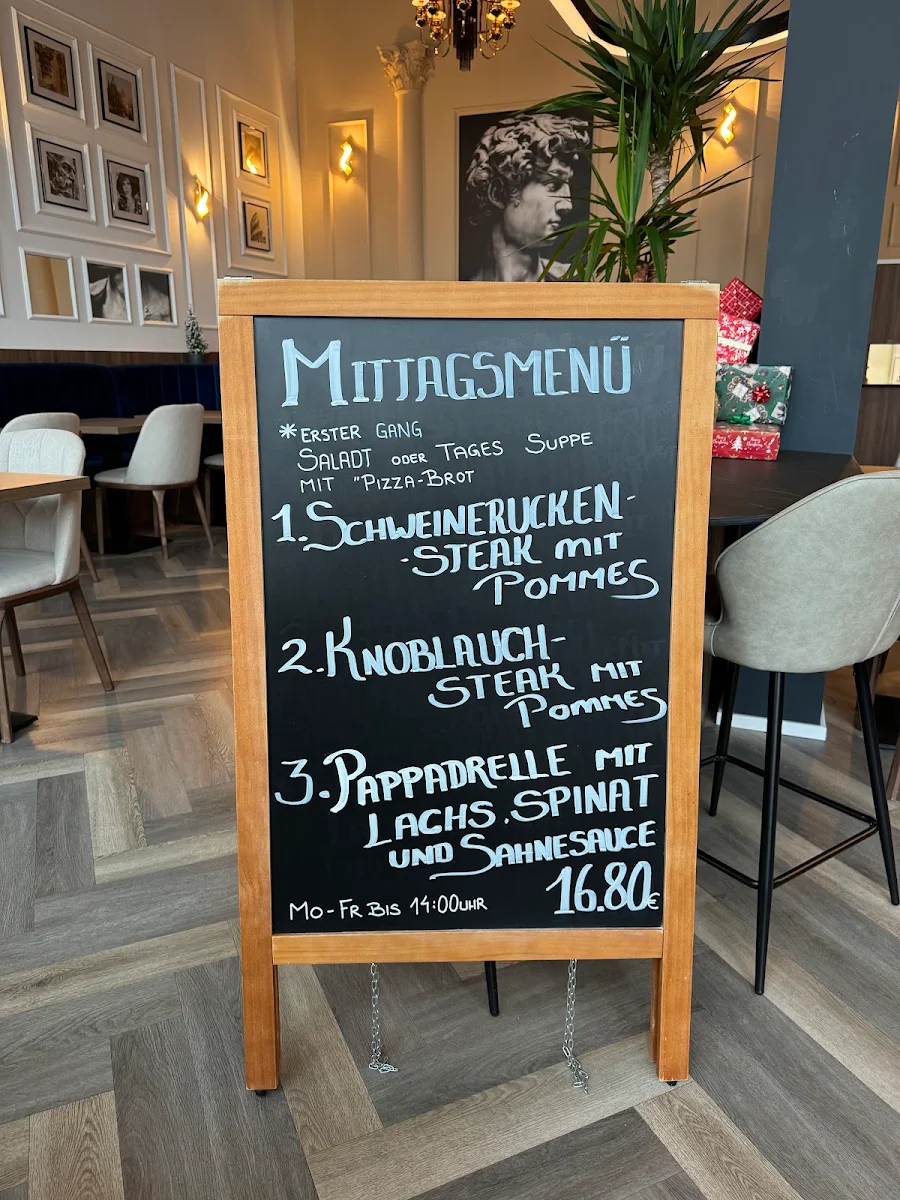 MITTAGSMENÜ
*ERSTER GANG
SALADT ODER TAGES SUPPE
MIT "PIZZA-BROT
1. SCHWEINERUCKEN-
-STEAK MIT
POMMES
2. KNOBLAUCH-
STEAK MIT
POMMES
3. PAPPADRELLE MIT
LACHS, SPINAT
UND SAHNESAUCE
16.80€
MO-FR BIS 14:00UHR